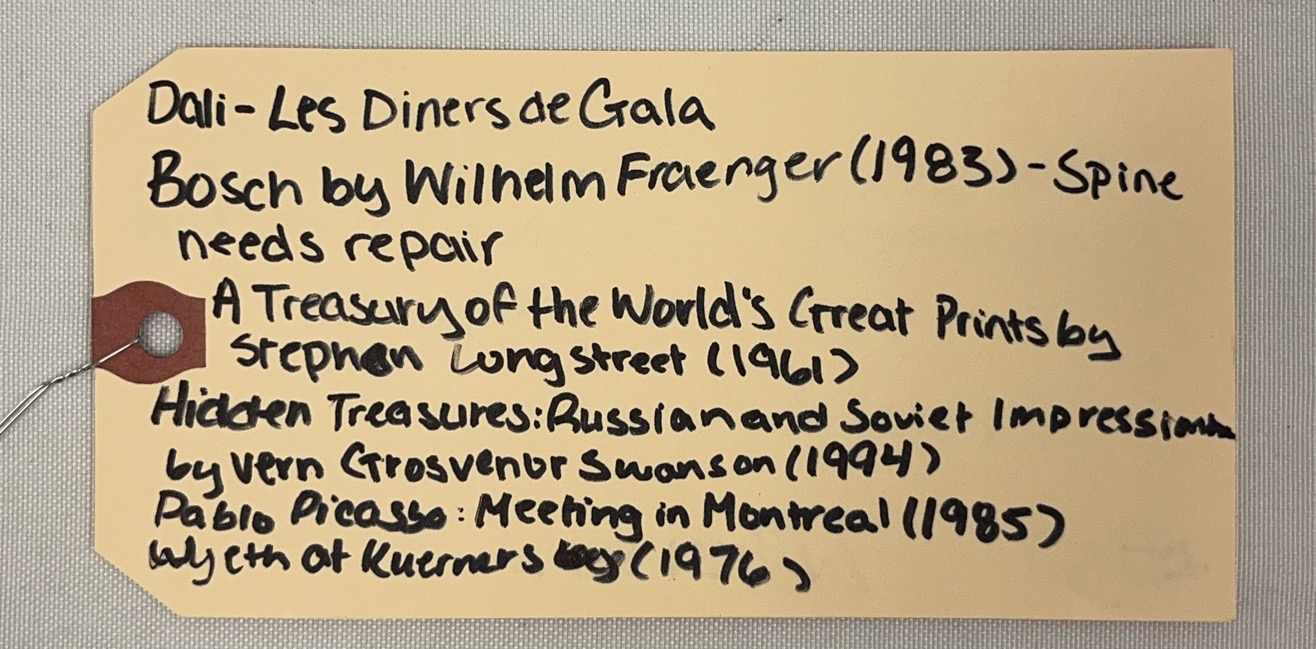 Dali - Les Diners de Gala
Bosch by Wilhelm Fraenger (1983) - Spine
needs repair
A Treasury of the World's Great Prints by
Stephen Longstreet (1961)
Hidden Treasures: Russian and Soviet
by Vern Grosvenor Swanson (1994)
Pablo Picasso: Meeting in Montreal (1985)
Wyeth at Kuerners (1976)